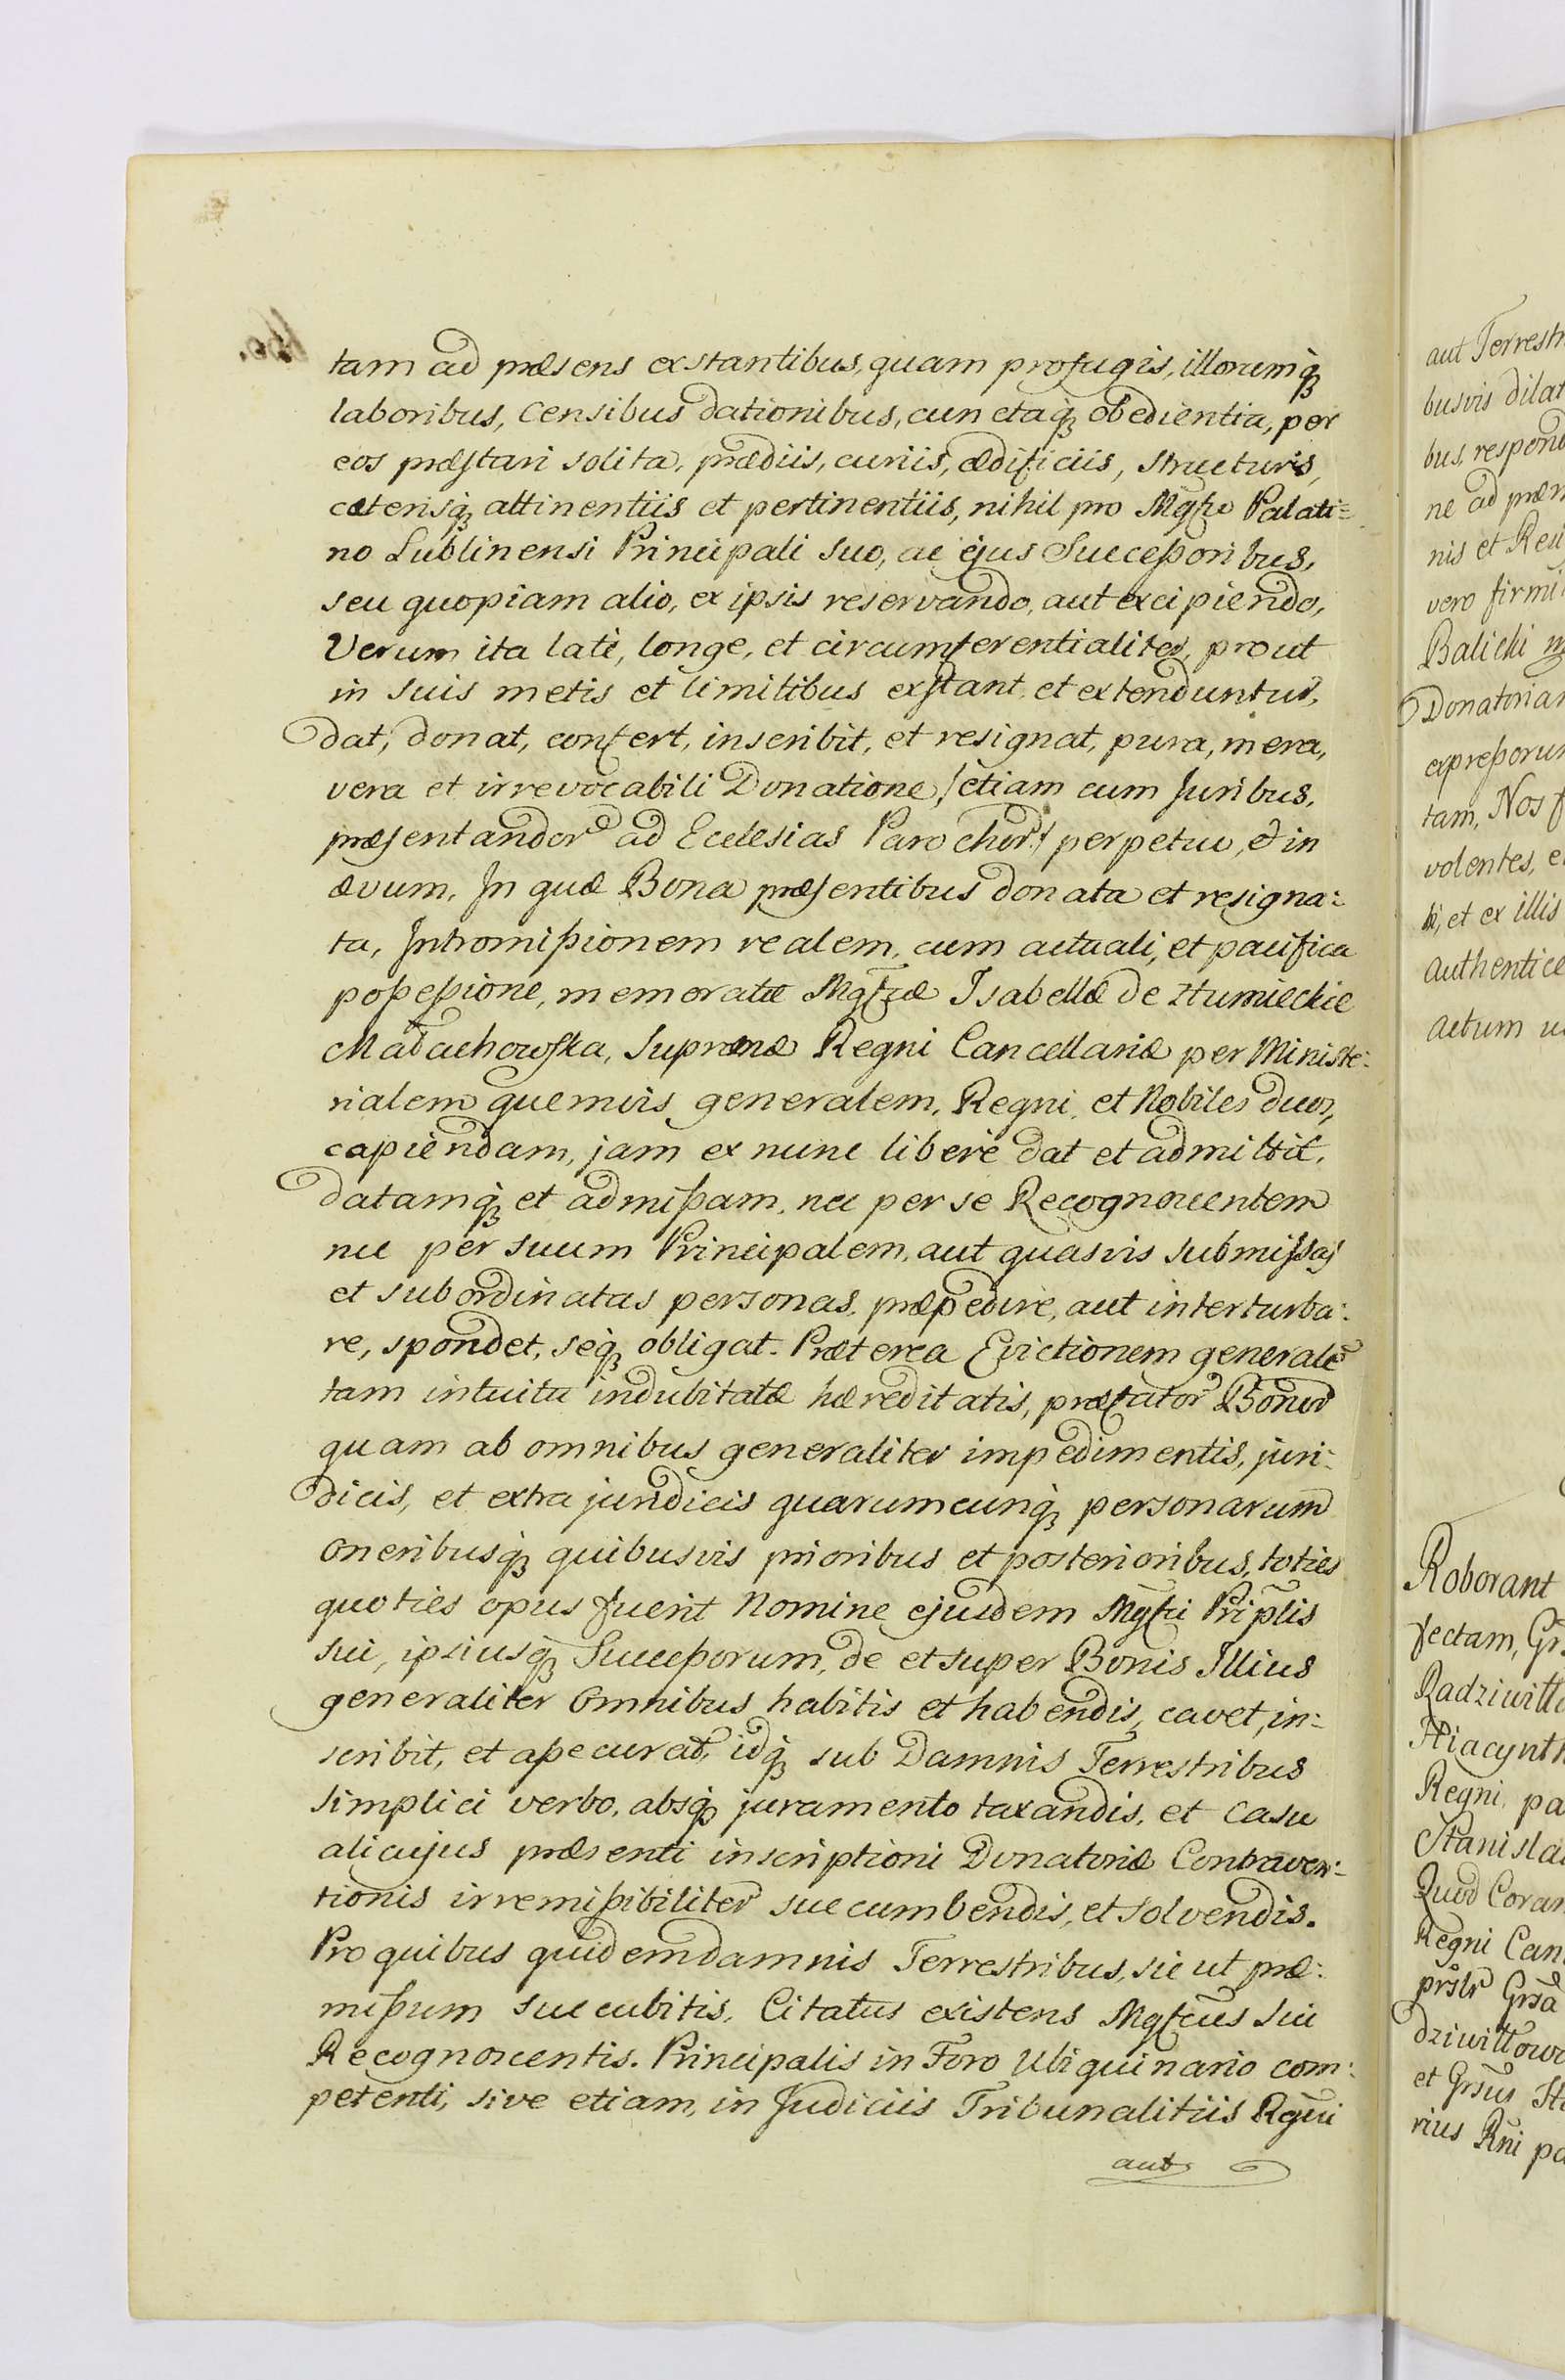 tam ad præsens exstantibus, quam profugis, illorumq́ꝫ
laboribus, Censibus dationibus, cunctaq́ꝫ obedientia, per
eos præstari solita, prædiis, curiis, ædificiis, structuris,
cæterisq́ꝫ attinentiis et pertinentiis, nihil pro Mgfco Palati=
no Lublinensi Principali suo, ac ejus Successoribus,
seu quopiam alio, ex ipsis reservando, aut excipiendo,
Verum ita latè, longe, et circumferentialiter, prout
in suis metis et limitibus exstant, et extenduntur,
dat, donat, confert, inscribit, et resignat, pura, mera,
vera et irrevocabili Donatione /etiam cum Juribus,
præsentandor ad Ecclesias Parochor/ perpetuo, & in
ævum. In quæ Bona præsentibus donata et resigna:
ta, Intromissionem realem, cum actuali, et pacifica
possessione, memoratæ Mgfcæ Isabellæ de Humieckie
Małachowska, Supremæ Regni Cancellariæ per Ministe:
rialem quemvis generalem, Regni, et Nobiles duos,
capiendam, jam ex nunc liberè dat et admittit,
datamq́ꝫ et admissam, nec per se Recognoscentem
nec per suum Principalem, aut quasvis submissas
et subordinatas personas, præpedire, aut interturba:
re, spondet, seq́ꝫ obligat. Præterea Evictionem generalẽ
tam intuitu indubitatæ hæreditatis, præfator Bonor
quam ab omnibus generaliter impedimentis, juri:
dicis, et extrajuridicis quarumcunq́ꝫ personarum
Oneribusq́ꝫ quibusvis prioribus et posterioribus, toties
quoties opus fuerit Nomine ejusdem Mgfci Priplis
sui, ipsiusq́ꝫ Successorum, de et super Bonis Illius
generaliter Omnibus habitis et habendis, cavet, in:
scribit, et assecurat, idq́ꝫ sub Damnis Terrestribus
simplici verbo, absq́ꝫ juramento taxandis, et Casu
alicujus præsenti inscriptioni Donatoriæ Contraven:
tionis irremissibiliter succumbendis, et solvendis.
Pro quibus quidem damnis Terrestribus, sic ut præ:
missum succubitis, Citatus existens Mgfcus sui
Recognoscentis. Principalis in Foro Ubiquinario com:
petenti, sive etiam, in Judiciis Tribunalitiis Rgni
aut
aut Terrestr
busvis dilat
bus, respond
ne ad præm
nis et Reu
vero firmi
Balicki
Donatoriam
expressorum
tam, Nos f
volentes, e
et ex illis
Authentice
Actum u
Roborant
fectam, Gr
Radziwiłł
Hiacynth
Regni, pa
Stanisla
Quod Coram
Regni Can
prślr Grsã
dziwiłłowi
et Grsus H
rius Rñi pa